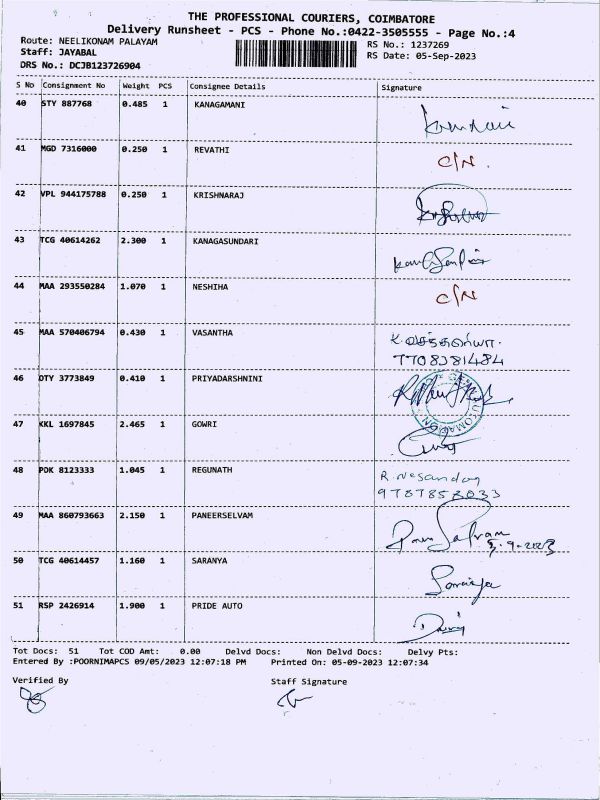 THE PROFESSIONAL COURIERS, COIMBATORE
Delivery Runsheet - PCS - Phone No.:0422-3505555 - Page No.:4
Route: NEELIKONAM PALAYAM RS No.: 1237269
Staff: JAYABAL RS Date: 05-Sep-2023
DRS No.: DCJB123726904
S No Consignment No Weight PCS Consignee Details Signature
40 STY 887768 0.485 1 KANAGAMANI
41 MGD 7316000 0.250 1 REVATHI C/N
42 VPL 944175788 0.250 1 KRISHNARAJ
43 TCG 40614262 2.300 1 KANAGASUNDARI
44 MAA 293550284 1.070 1 NESHIHA C/N
45 MAA 570406794 0.430 1 VASANTHA
7708381484
46 DTY 3773849 0.410 1 PRIYADARSHNINI
47 KKL 1697845 2.465 1 GOWRI
48 PDK 8123333 1.045 1 REGUNATH
49 MAA 860793663 2.150 1 PANEERSELVAM
5-9-2023
50 TCG 40614457 1.160 1 SARANYA Saranya
51 RSP 2426914 1.900 1 PRIDE AUTO
Tot Docs: 51 Tot COD Amt: 0.00 Delvd Docs: Non Delvd Docs: Delvy Pts:
Entered By :POORNIMAPCS 09/05/2023 12:07:18 PM Printed On: 05-09-2023 12:07:34
Verified By Staff Signature